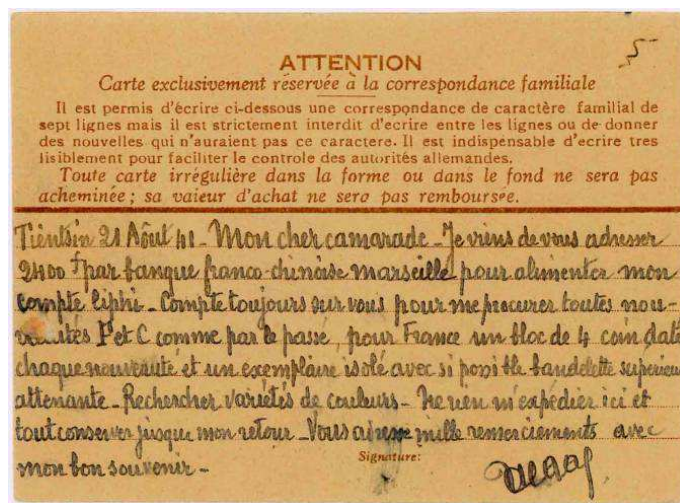 5
ATTENTION
Carte exclusivement réservée à la correspondance familiale
Il est permis d'écrire ci-dessous une correspondance de caractère familial de
sept lignes mais il est strictement interdit d'ecrire entre les lignes ou de donner
des nouvelles qui n'auraient pas ce caractere. Il est indispensable d'écrire tres
lisiblement pour faciliter le controle des autorités allemandes.
Toute carte irrégulière dans la forme ou dans le fond ne sera pas
acheminée ; sa valeur d'achat ne sera pas remboursée.
Tientsin 21 Août 41 - Mon cher camarade - Je viens de vous adresser
2400 f par banque franco-chinoise marseille pour alimenter mon
compte liphi - Compte toujours sur vous pour me procurer toutes nou-
veautés P et C comme par le passé, pour France un bloc de 4 coin daté
chaque nouveauté et un exemplaire isolé avec si possible bandelette supérieure
attenante - Rechercher variétés de couleurs - Ne rien m'expédier ici et
tout conserver jusque mon retour - Vous adresse mille remerciements avec
mon bon souvenir -
Signature: